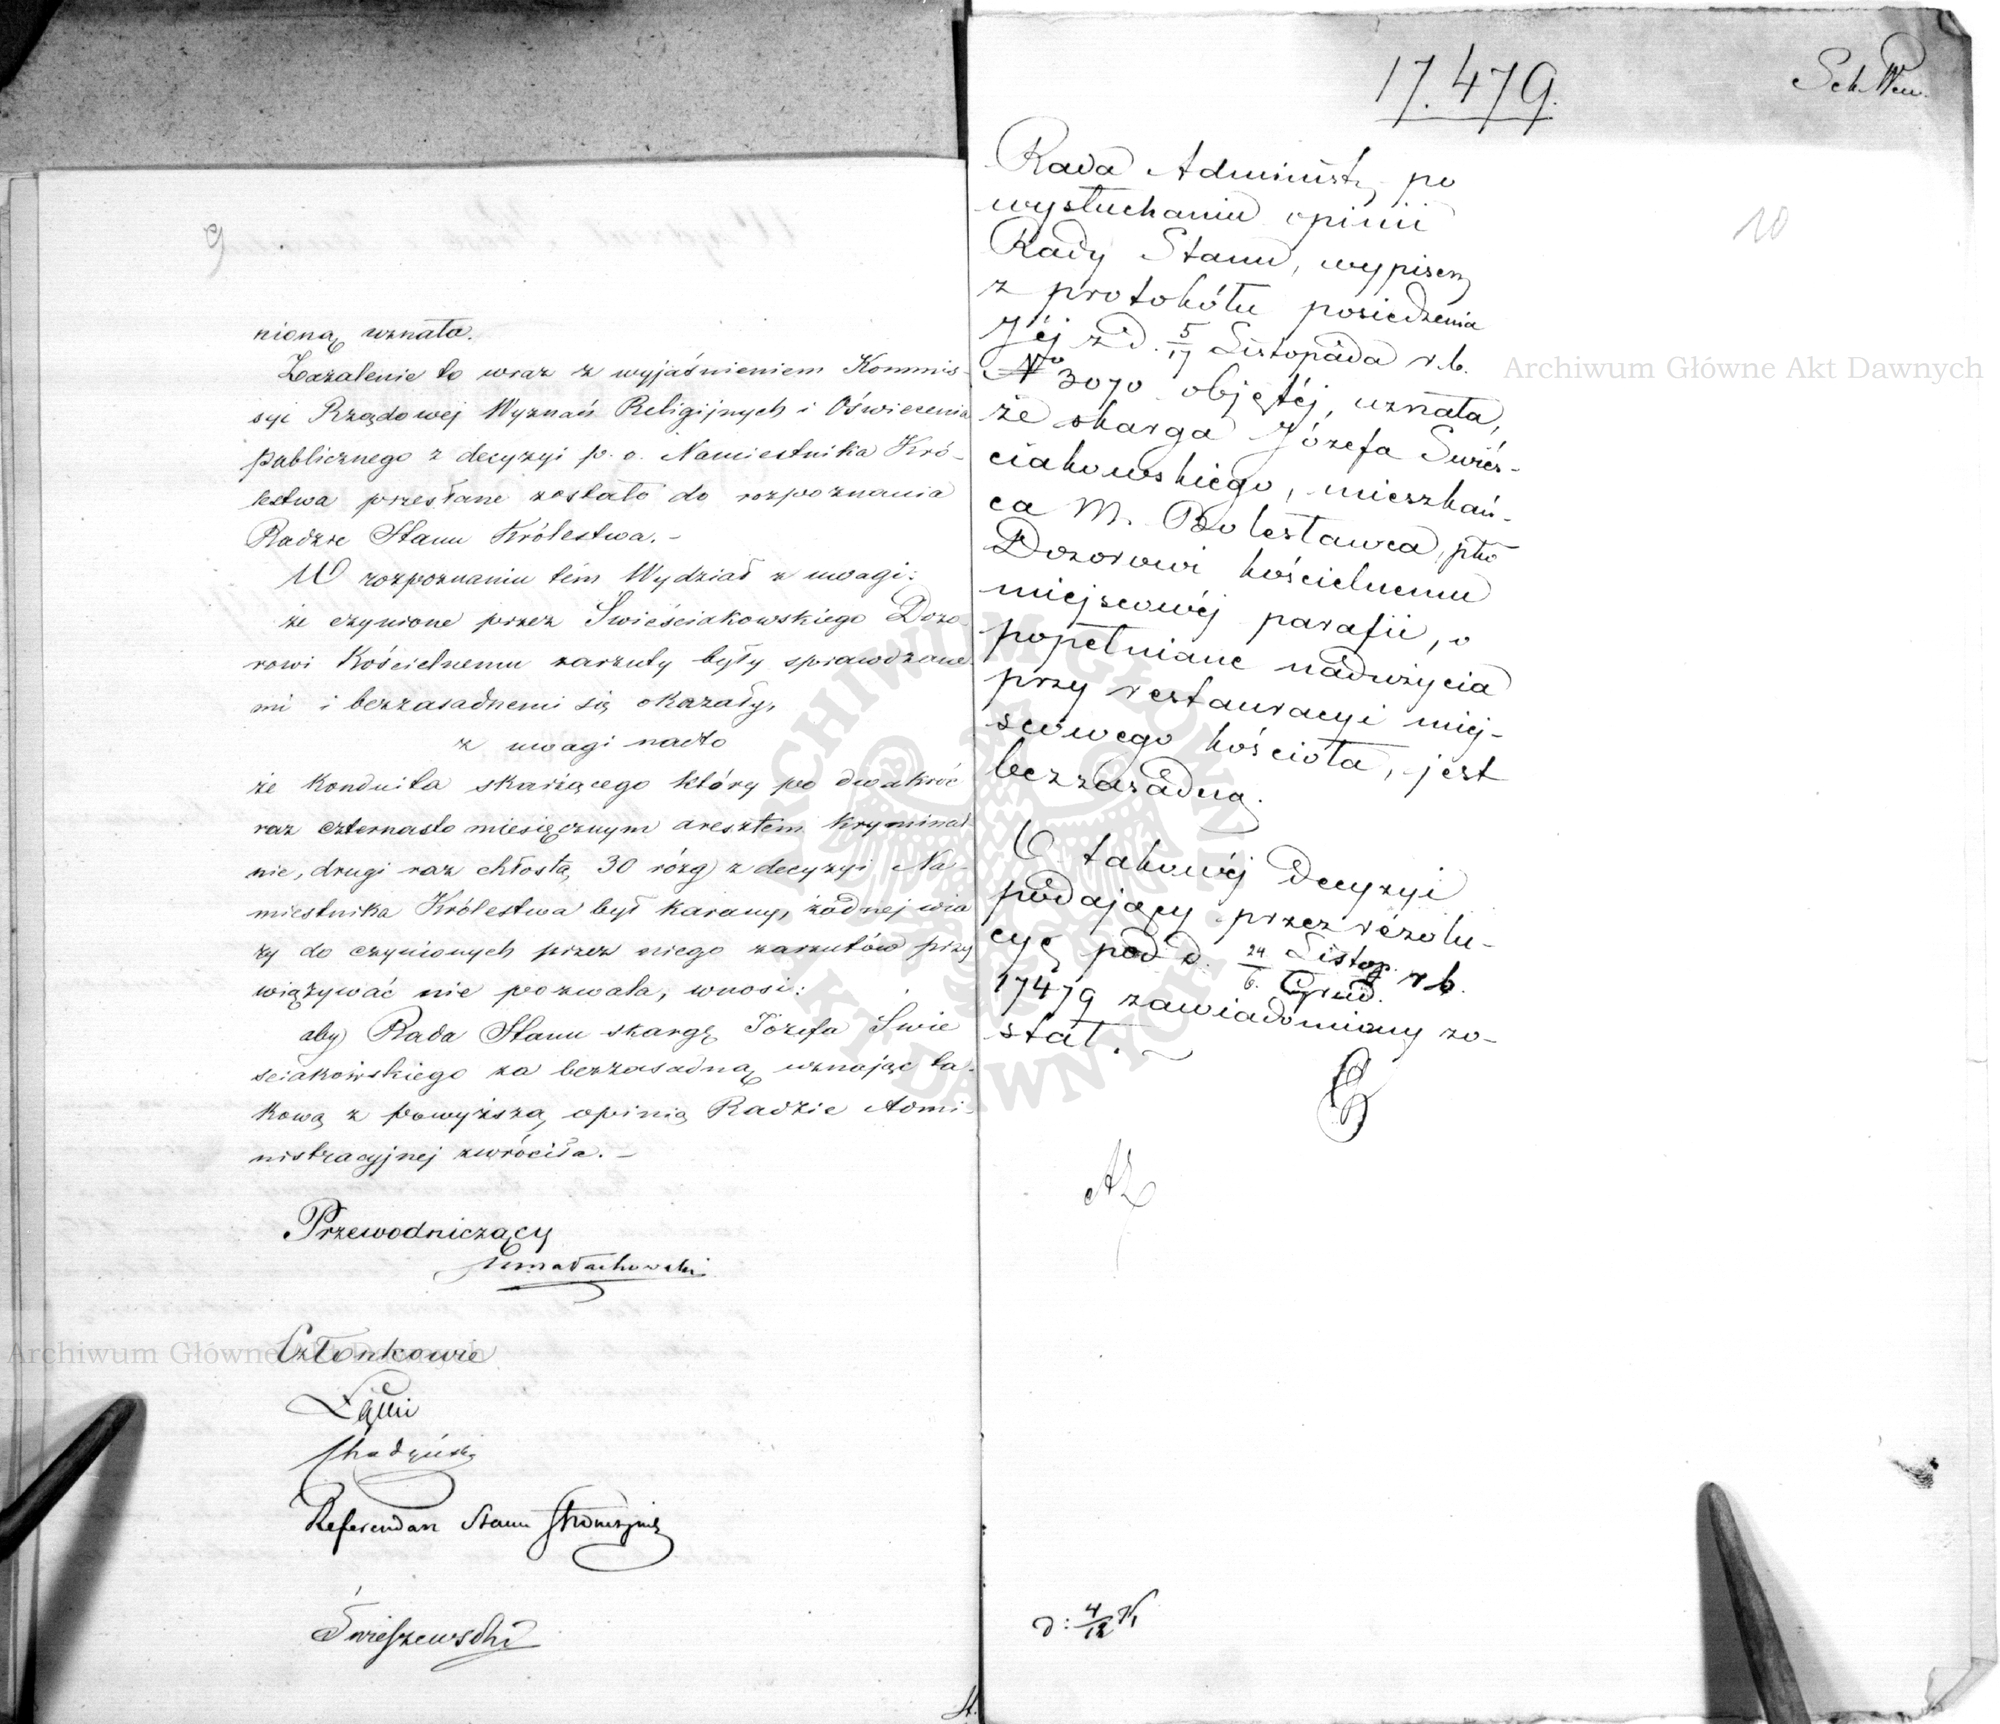 9
nioną uznała.
Zażalenie to wraz z wyjaśnieniem Kommis-
syi Rządowej Wyznań Religijnych i Oświecenia
publicznego z decyzyi p. o. Namiestnika Kró-
lestwa przesłane zostało do rozpoznania
Radzie Stanu Królestwa. -
W rozpoznaniu tém Wydział z uwagi:
że czynione przez Swieściakowskiego Dozo-
rowi Kościelnemu zarzuty były sprawdzane
mi i bezzasadnemi się okazały,
z uwagi nadto
że konduita skarżącego który po dwakroć
raz czternasto miesięcznym aresztem kryminal-
nie, drugi raz chłostą 30 rózg z decyzyi Na-
miestnika Królestwa był karany, żadnej wia
ry do czynionych przez niego zarzutów przy
wiązywać nie pozwala, wnosi:
aby Rada Stanu skargę Józefa Świe
ściakowskiego za bezzasadną uznając ta-
kową z powyższą opinią Radzie Admi-
nistracyjnej zwróciła. -
Przewodniczący
Małachowski
Członkowie
Łęski
Referendarz Stanu Stronczyński
Świeszewski
17.479.
10
Rada Administ. po
wysłuchaniu opinii
Rady Stanu, wypisem
z protokółu posiedzenia
Jéj z d. 5/17 Listopada r. b.
No 3070 objętéj, uznała,
że skarga Józefa Swieś-
ciakowskiego, mieszkań-
ca m. Bolesławca, pko
Dozorowi kościelnemu
miejscowéj parafii, o
popełniane nadużycia
przy restauracyi miej-
scowego kościoła, jest
bezzasadną.
O takowéj decyzyi
podający przez rezolu-
cyę pod d. 24/6 Listop./Grud. r. b.
17479 zawiadomiony zo-
stał. ~
d: 4/12
Archiwum Główne Akt Dawnych
Archiwum Główne Akt Dawnych
ARCHIWUM GŁÓWNE AKT DAWNYCH